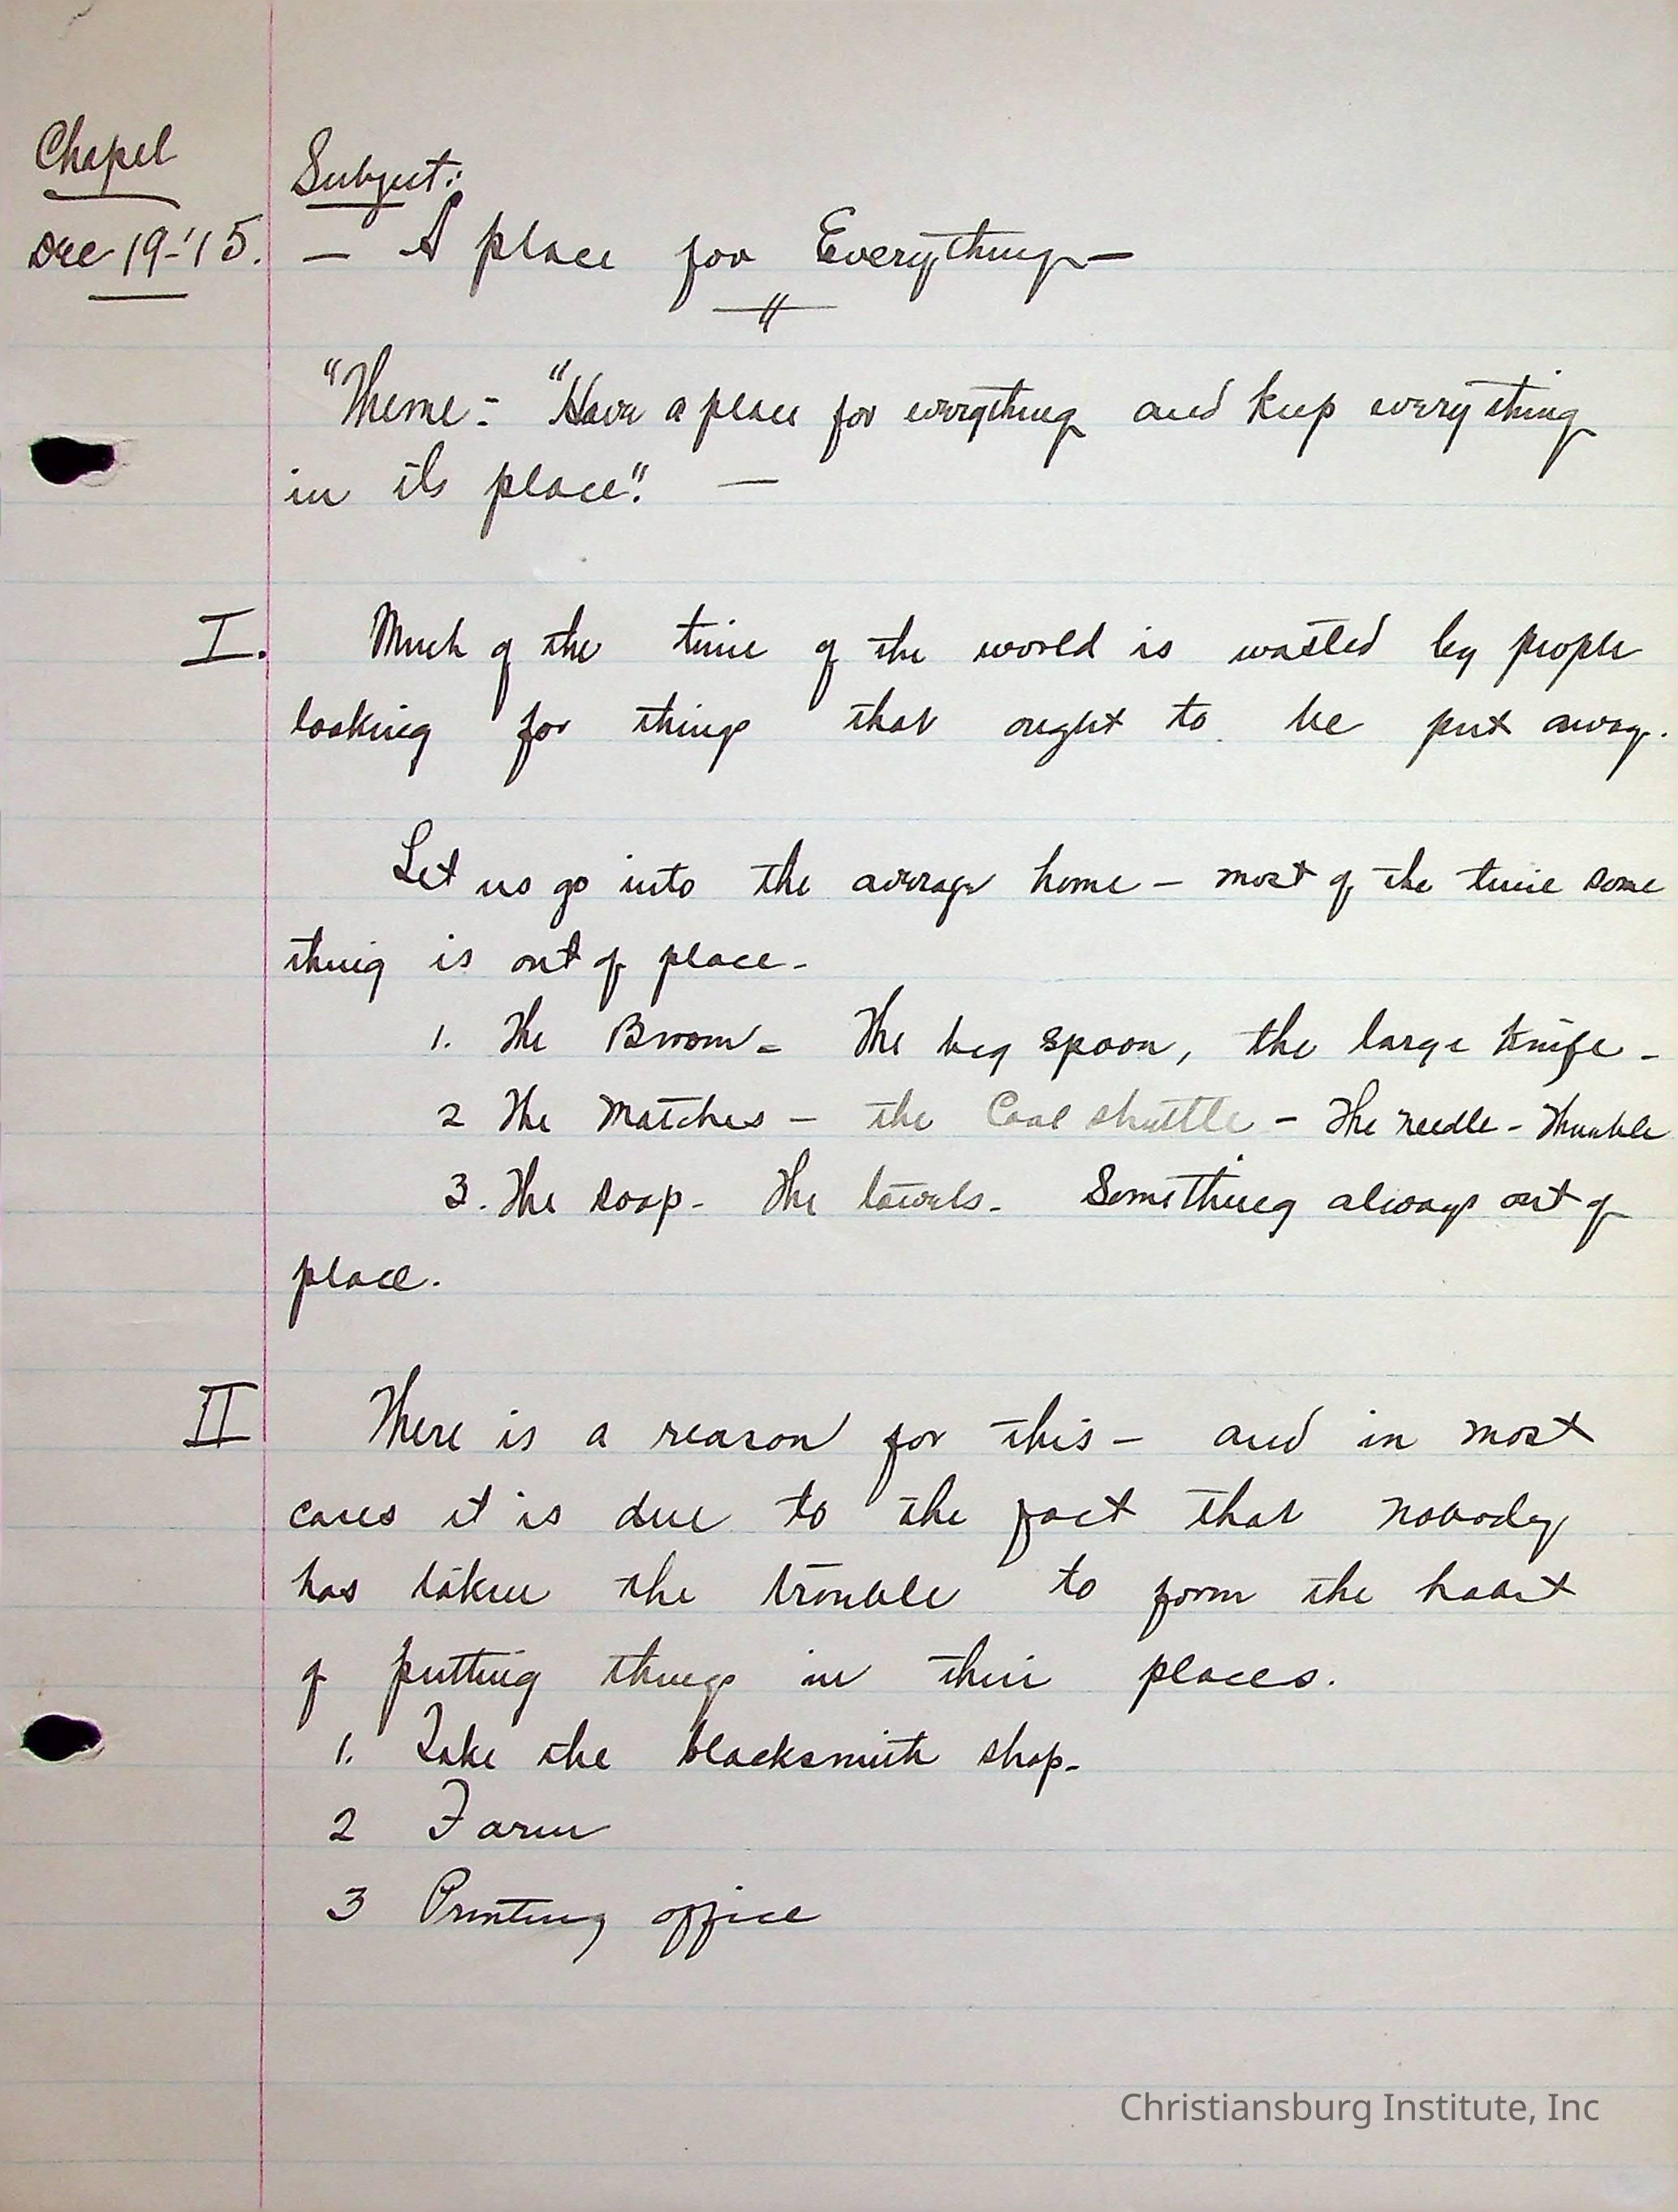 Chapel
Dec 19-'15.
Subject:
— A place for Everything —
"Theme:- "Have a place for everything and keep everything
in its place". —
I. Much of the time of the world is wasted by people
looking for things that ought to be put away.
Let us go into the average home — most of the time some
thing is out of place -
1. The Broom - The big spoon, the large knife -
2 The Matches — the Coal shuttle — The needle - Thimble
3. The soap - The towels - Something always out of
place.
II There is a reason for this — and in most
cases it is due to the fact that nobody
has taken the trouble to form the habit
of putting things in their places.
1. Take the blacksmith shop -
2 Farm
3 Printing office
Christiansburg Institute, Inc